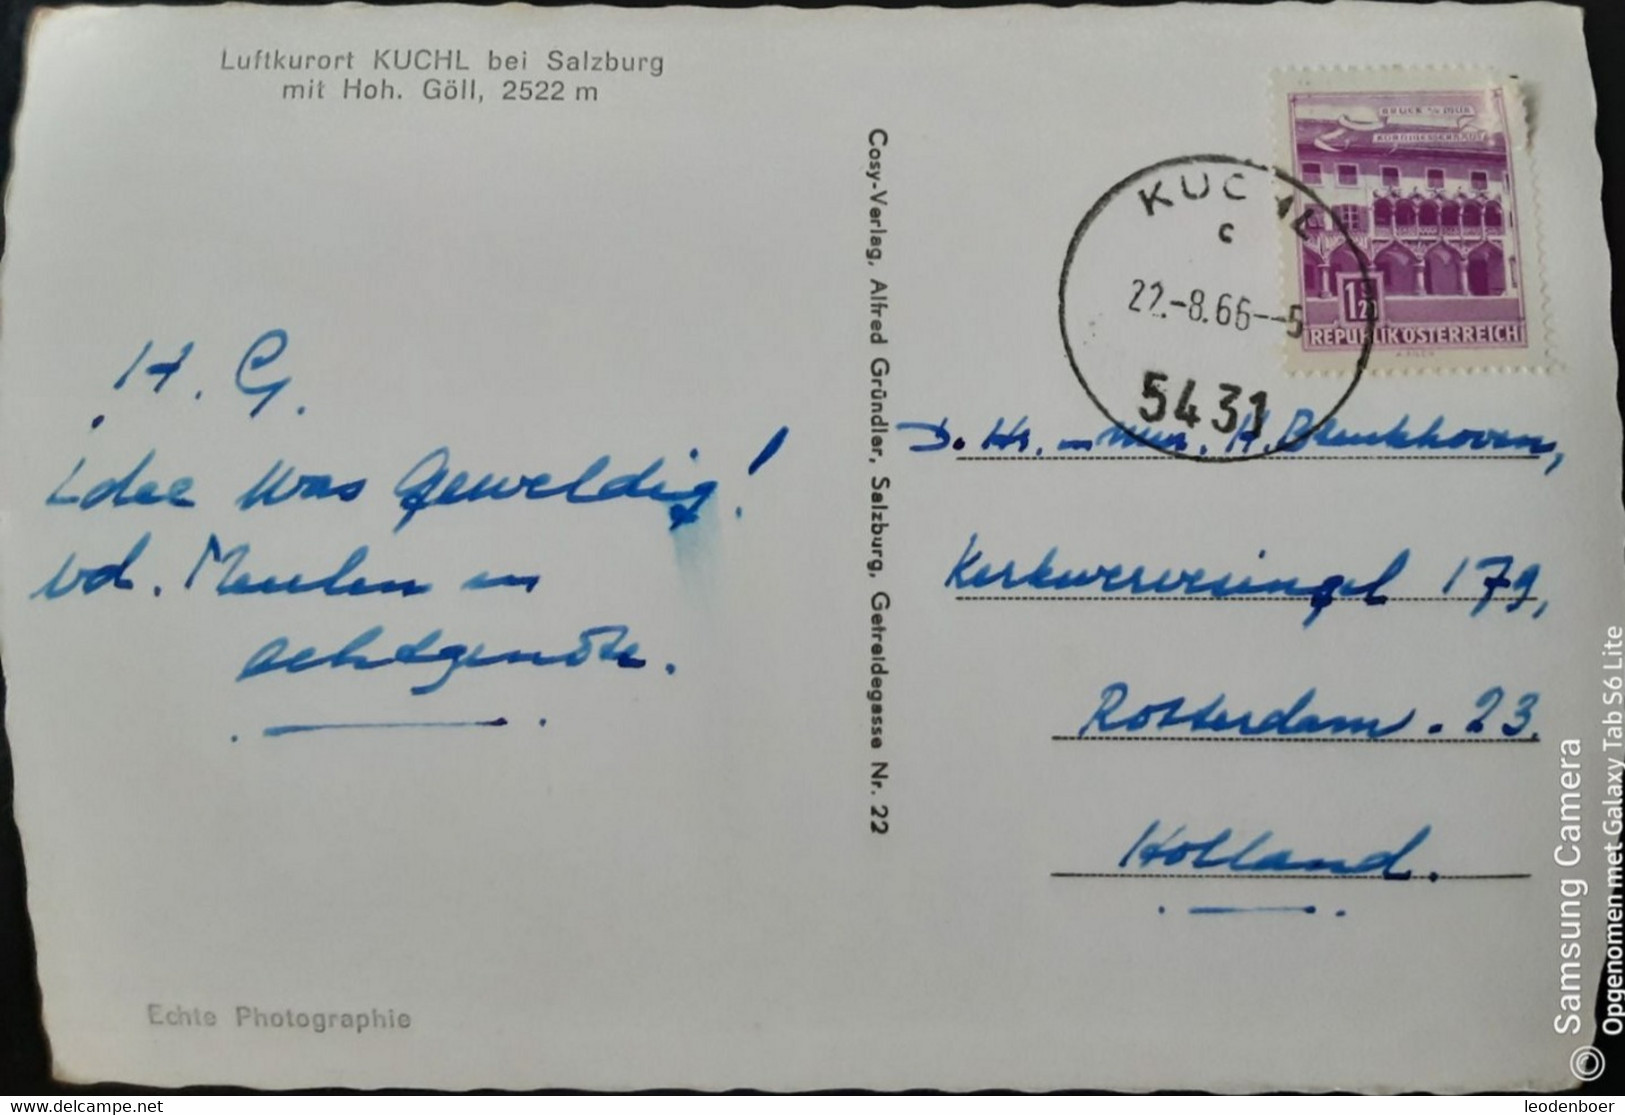 Luftkurort KUCHL bei Salzburg
mit Hoh. Göll, 2522 m
H. G.
idee was geweldig!
vd. Meulen en
echtgenote.
Echte Photographie
Cosy-Verlag, Alfred Gründler, Salzburg, Getreidegasse Nr. 22
BRUCK a/d MUR
KORNMESSERHAUS
1 50
REPUBLIK ÖSTERREICH
KUCHL
c
22.-8.66--5
5431
D. Hr. en mevr. H. Blenkhoven,
Kerkwervesingel 179,
Rotterdam. 23.
Holland.
© Samsung Camera
Opgenomen met Galaxy Tab S6 Lite
www.delcampe.net
leodenboer